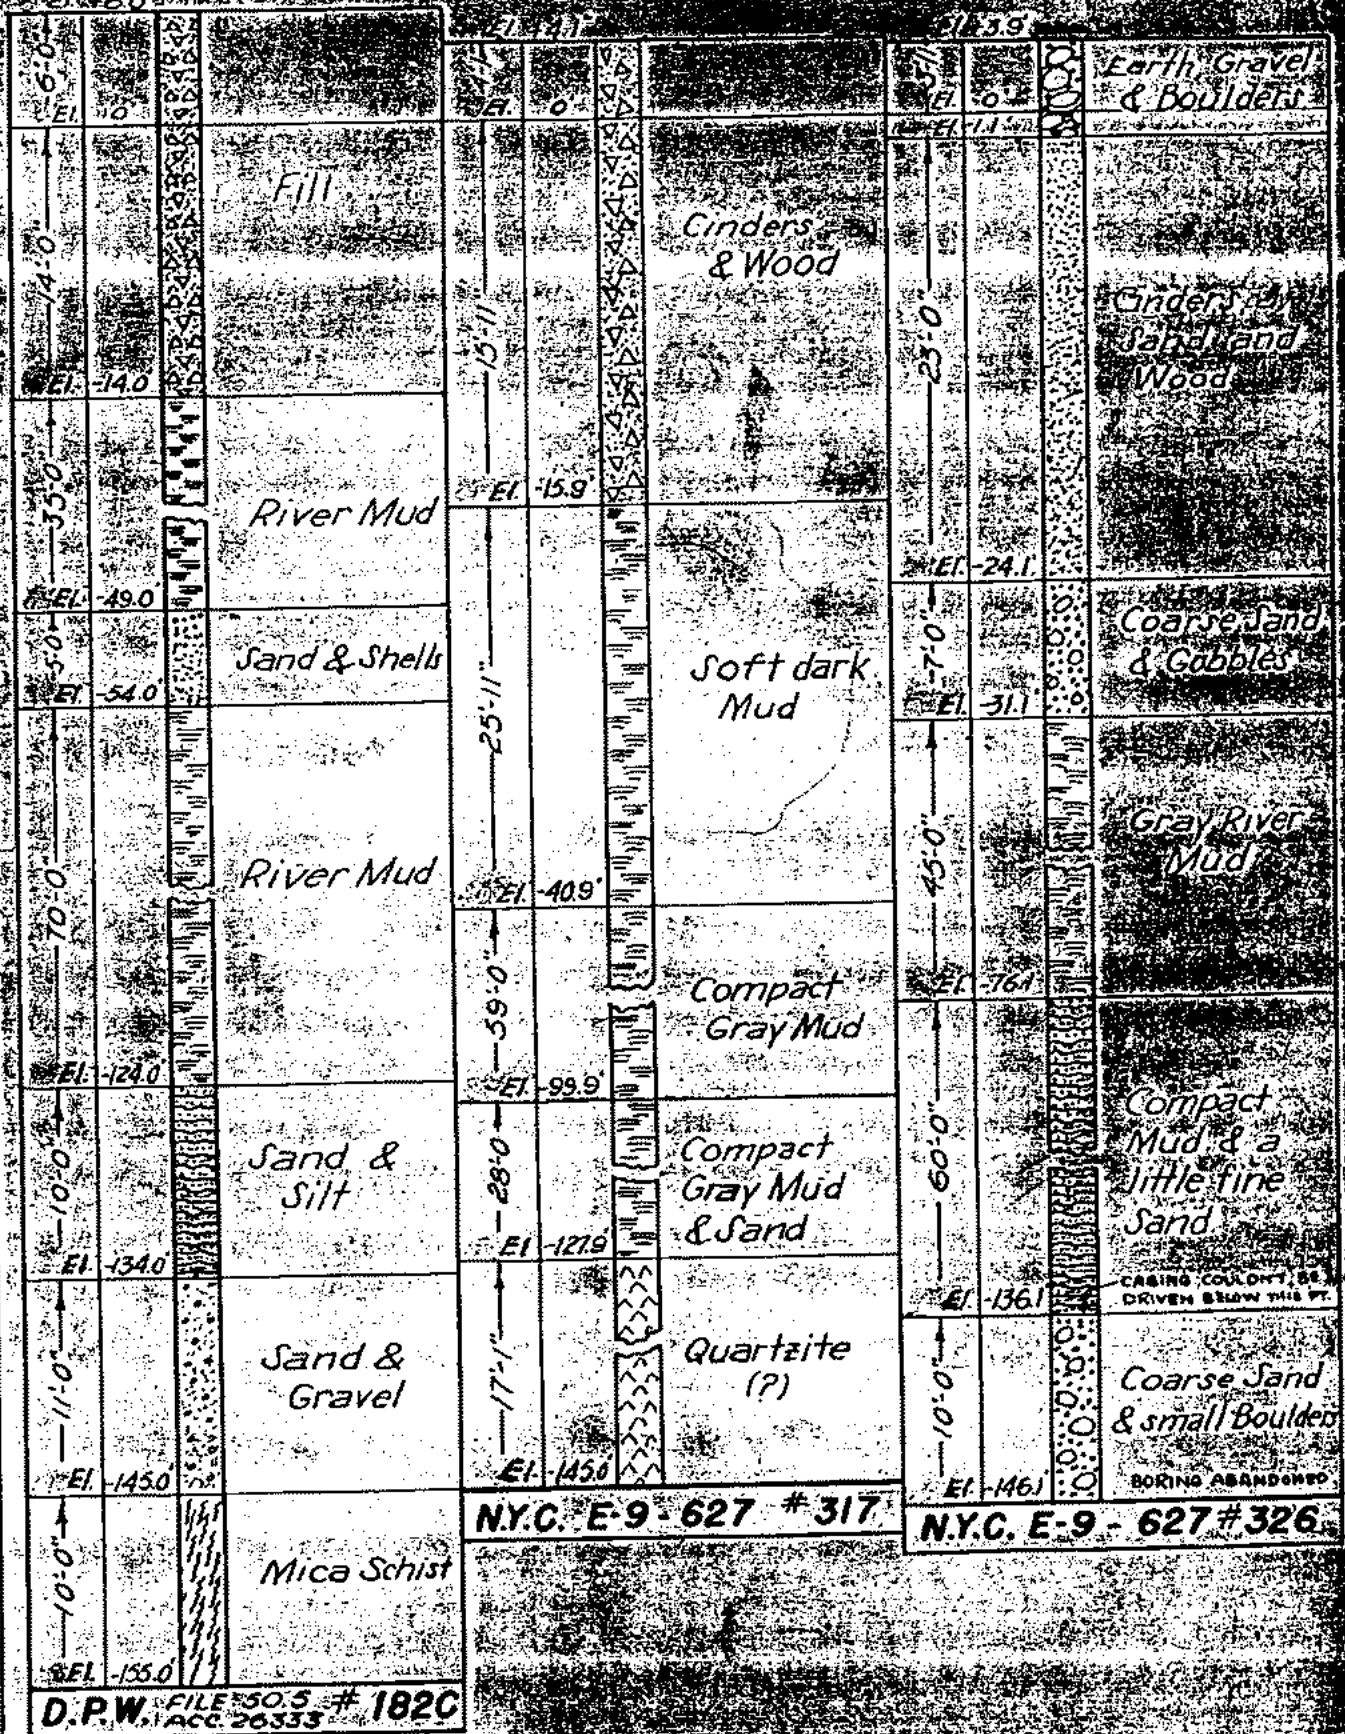 6'-0"
El. 0'
Fill
14'-0"
El. -14.0'
35'-0"
River Mud
El. -49.0'
5'-0"
Sand & Shells
El. -54.0'
70'-0"
River Mud
El. -124.0'
10'-0"
Sand &
Silt
El. -134.0'
11'-0"
Sand &
Gravel
El. -145.0'
10'-0"
Mica Schist
El. -155.0'
D.P.W. FILE 50.5 # 182C
ACC 26333
El.
El. 0'
Cinders
& Wood
15'-11"
El. -15.9'
25'-11"
Soft dark
Mud
El. -40.9'
59'-0"
Compact
Gray Mud
El. -99.9'
28'-0"
Compact
Gray Mud
& Sand
El. -127.9'
17'-1"
Quartzite
(?)
El. -145.0'
N.Y.C. E-9-627 #317
El. 3.9'
Earth, Gravel
& Boulders
El. 0
El. -1.1'
23'-0"
Cinders
Sand and
Wood
El. -24.1'
7'-0"
Coarse Sand
& Cobbles
El. -31.1'
45'-0"
Gray River
Mud
El. -76.1'
60'-0"
Compact
Mud & a
little fine
Sand
CASING COULDN'T BE
DRIVEN BELOW THIS PT.
El. -136.1'
10'-0"
Coarse Sand
& small Boulders
BORING ABANDONED
El. -146.1'
N.Y.C. E-9-627 #326